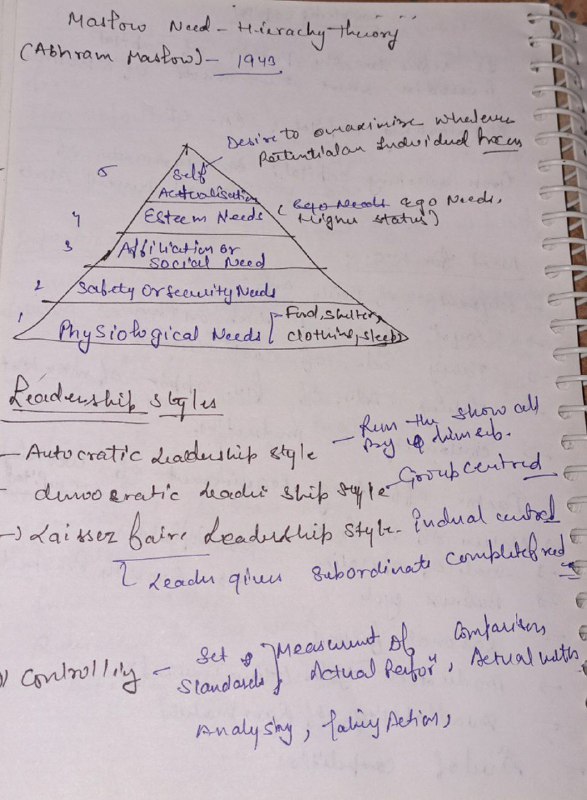 Maslow Need-Hierachy-theory
(Abhram Maslow) - 1943
Desire to maximize whatever
Potential an Individual
5 Self
Actualisation
4 Esteem Needs (Ego Needs ego Needs,
Higher status)
3 Affiliation or
Social Need
2 Safety or Security Needs
1 Physiological Needs [ Food, shelter,
clothing, sleep
Leadership styles
- Autocratic Leadership style - Run the show all
by himself.
- democratic Leader ship style - Group centred
→ Laissez faire Leadership style - centred
Leader gives subordinate complete freed
Controlling - Set Standards } Measurment of Actual Perfor", Comparison Actual with
Analysing, Taking Action,